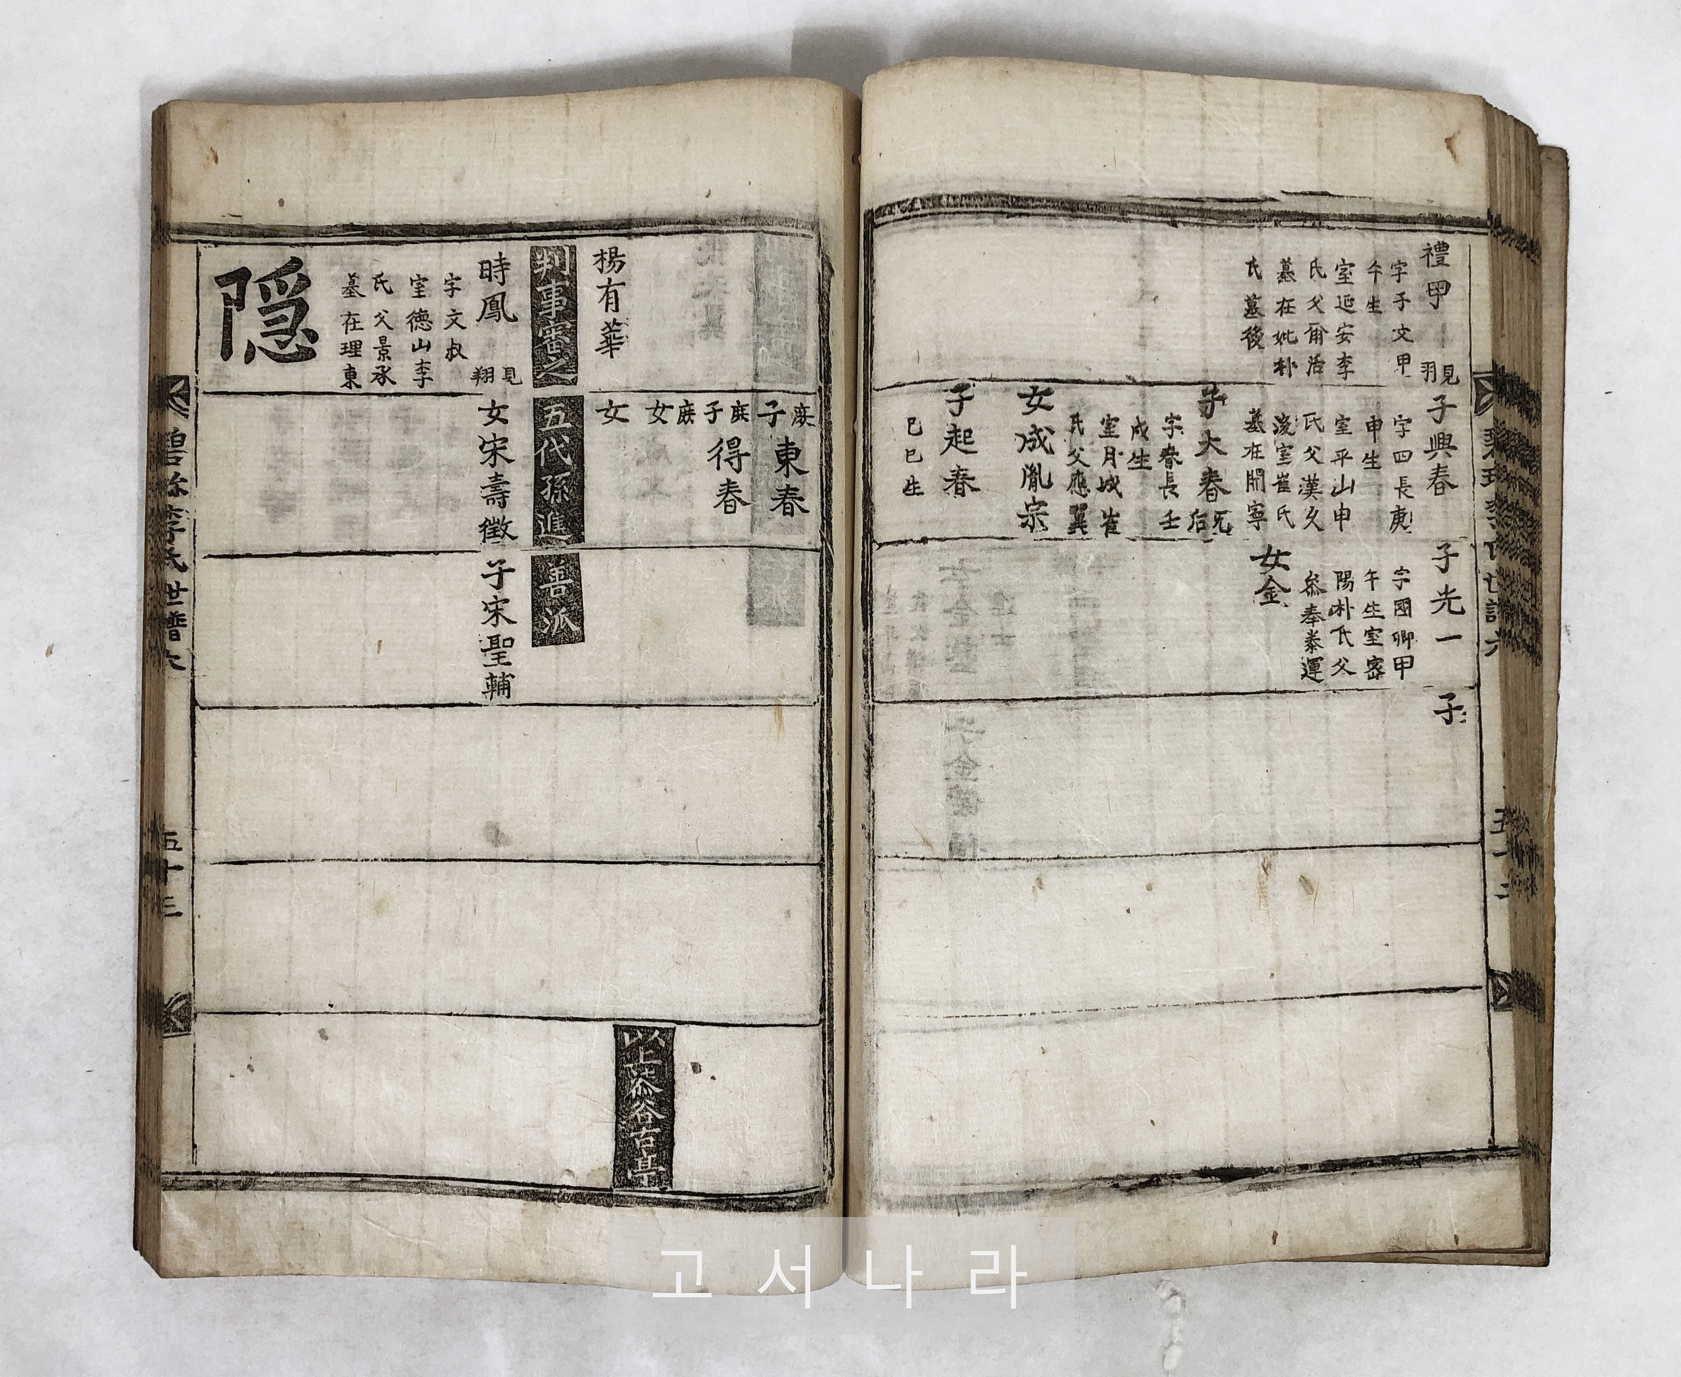 禮甲
見
羽
字子文甲
午生
室延安李
氏父甫活
墓在妣朴
氏墓後
子興春
字四長庚
申生
室平山申
氏父漢久
後室崔氏
墓在開寧
子大春
后死
字春長壬
戌生
室月城崔
氏父應翼
女成胤宗
子起春
己巳生
子光一
字國卿甲
午生室密
陽朴氏父
參奉泰運
女金
子
庶子東春
庶子得春
庶女
女
楊有華
判事審之
五代孫進
善派
時鳳
見
翔
字文叔
室德山李
氏父景承
墓在理東
女宋壽徵
子宋聖輔
隠
以上茶谷古基
碧珍李氏世譜六
五十二
碧珍李氏世譜六
五十三
고서나라